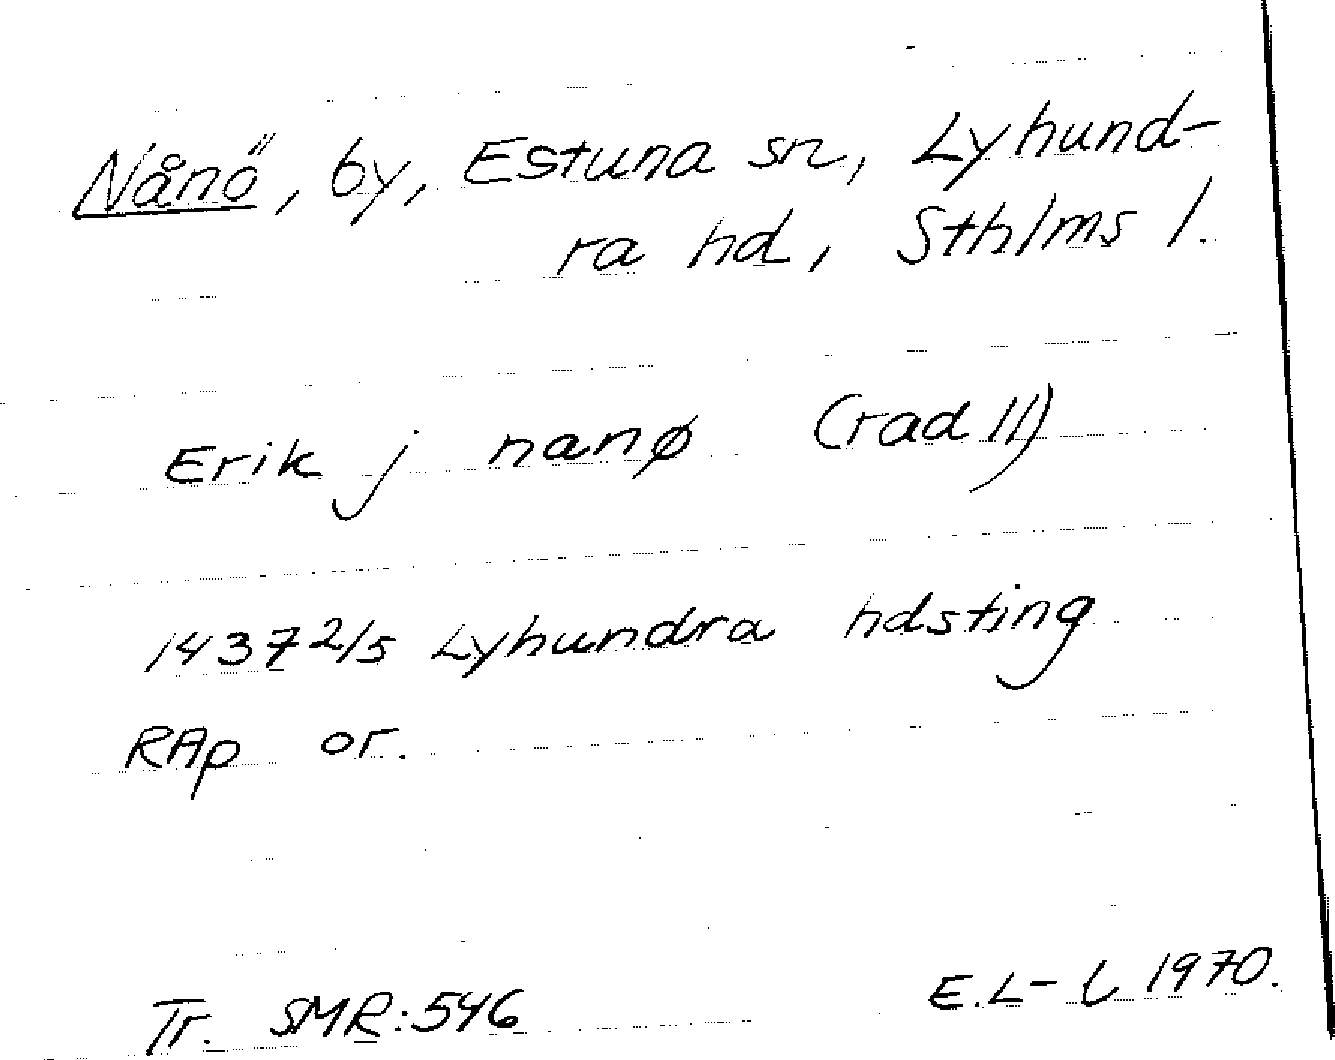 Nånö, by, Estuna sn, Lyhund-
ra hd, Sthlms l.
Erik j nanø (rad 11)
1437 2/5 Lyhundra hdsting
RAp or.
Tr. SMR:546
E.L-L 1970.